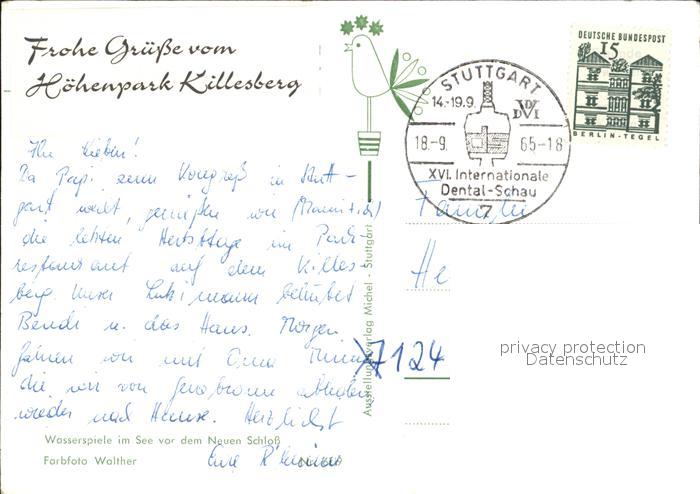 Frohe Grüße vom
Höhenpark Killesberg
Ihr Lieben!
Da Papi zum Kongreß in Stutt-
gart weilt, genießen wir
die letzten Herbsttage im Park-
restaurant auf dem Killes-
berg. Unser behütet
Bendi u. das Haus. Morgen
fahren wir mit Oma
die wir von abholen
wieder nach Hause. Herzlichst
Eure
Wasserspiele im See vor dem Neuen Schloß
Farbfoto Walther
Ausstellungsverlag Michel - Stuttgart
STUTTGART
14.-19.9.
VDDI
18.-9. 65-18
XVI. Internationale
Dental-Schau
7
DEUTSCHE BUNDESPOST
15
BERLIN-TEGEL
Familie
He
7124
privacy protection
Datenschutz